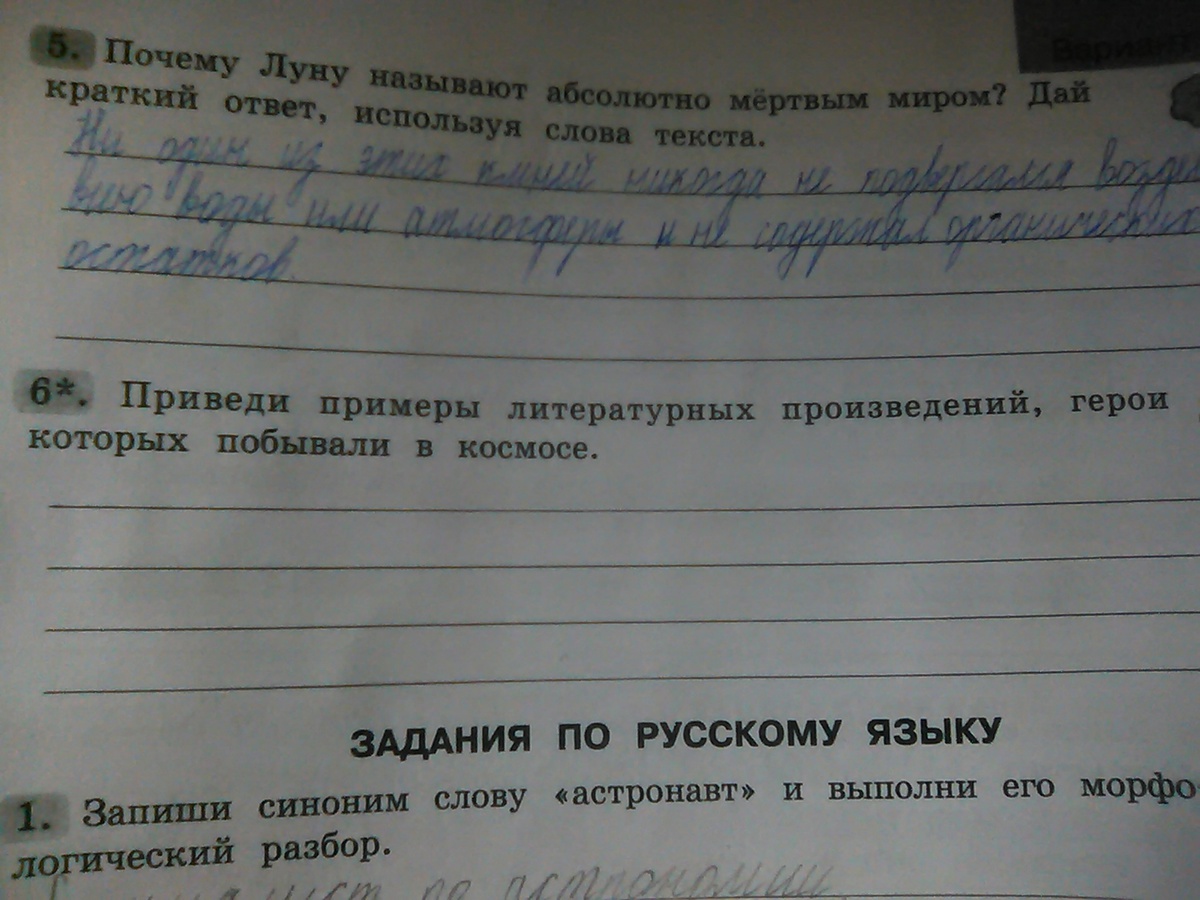 Вариант
5. Почему Луну называют абсолютно мёртвым миром? Дай
краткий ответ, используя слова текста.
Ни один из этих кмней никогда не подвергался воздей
вию воды или атмосферы и не содержал органических
остатков.
6*. Приведи примеры литературных произведений, герои
которых побывали в космосе.
ЗАДАНИЯ ПО РУССКОМУ ЯЗЫКУ
1. Запиши синоним слову «астронавт» и выполни его морфо-
логический разбор.
по астрономии